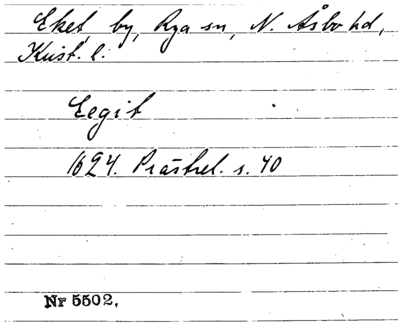 Eket, by, Rya sn, N. Åsbo hd,
Krist. l.
Eegit
1624. Prästrel. s. 40
Nr 5502.